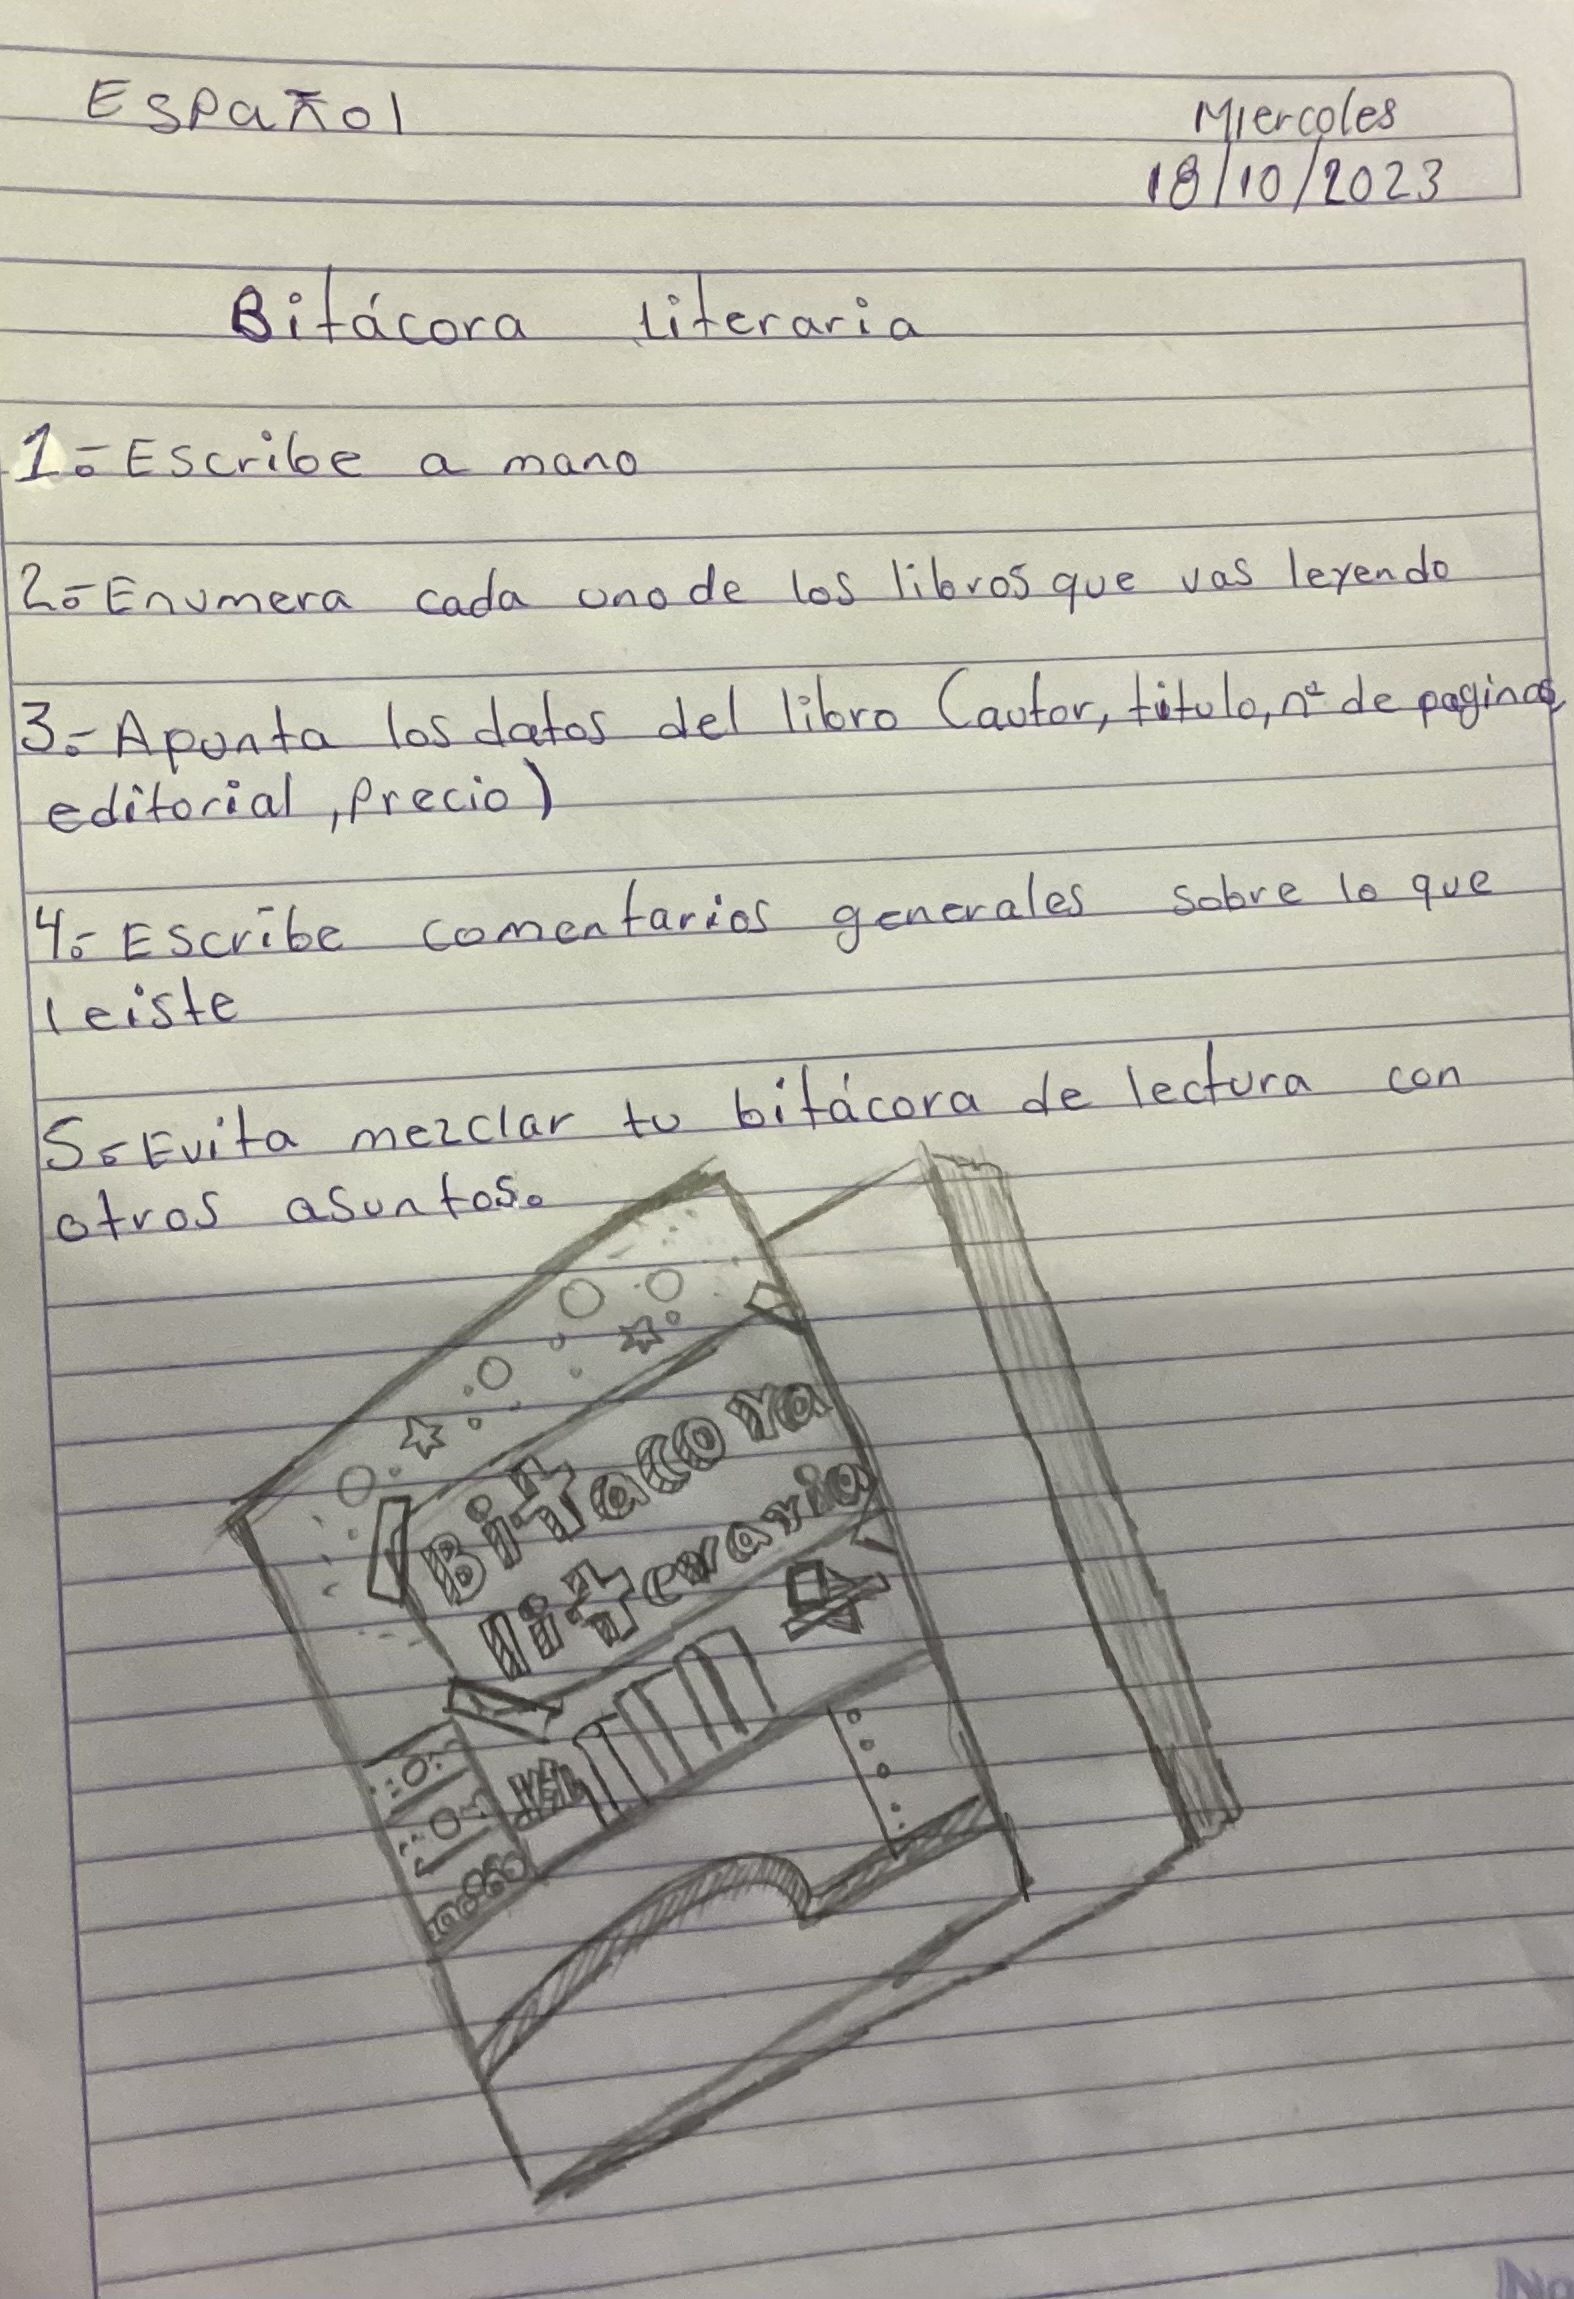 Español
Miercoles
18/10/2023
Bitácora literaria
1.- Escribe a mano
2.- Enumera cada uno de los libros que vas leyendo
3.- Apunta los datos del libro (autor, titulo, nº de paginas,
editorial, precio)
4.- Escribe comentarios generales sobre lo que
leiste
5.- Evita mezclar tu bitácora de lectura con
otros asuntos.
Bitacora
literaria